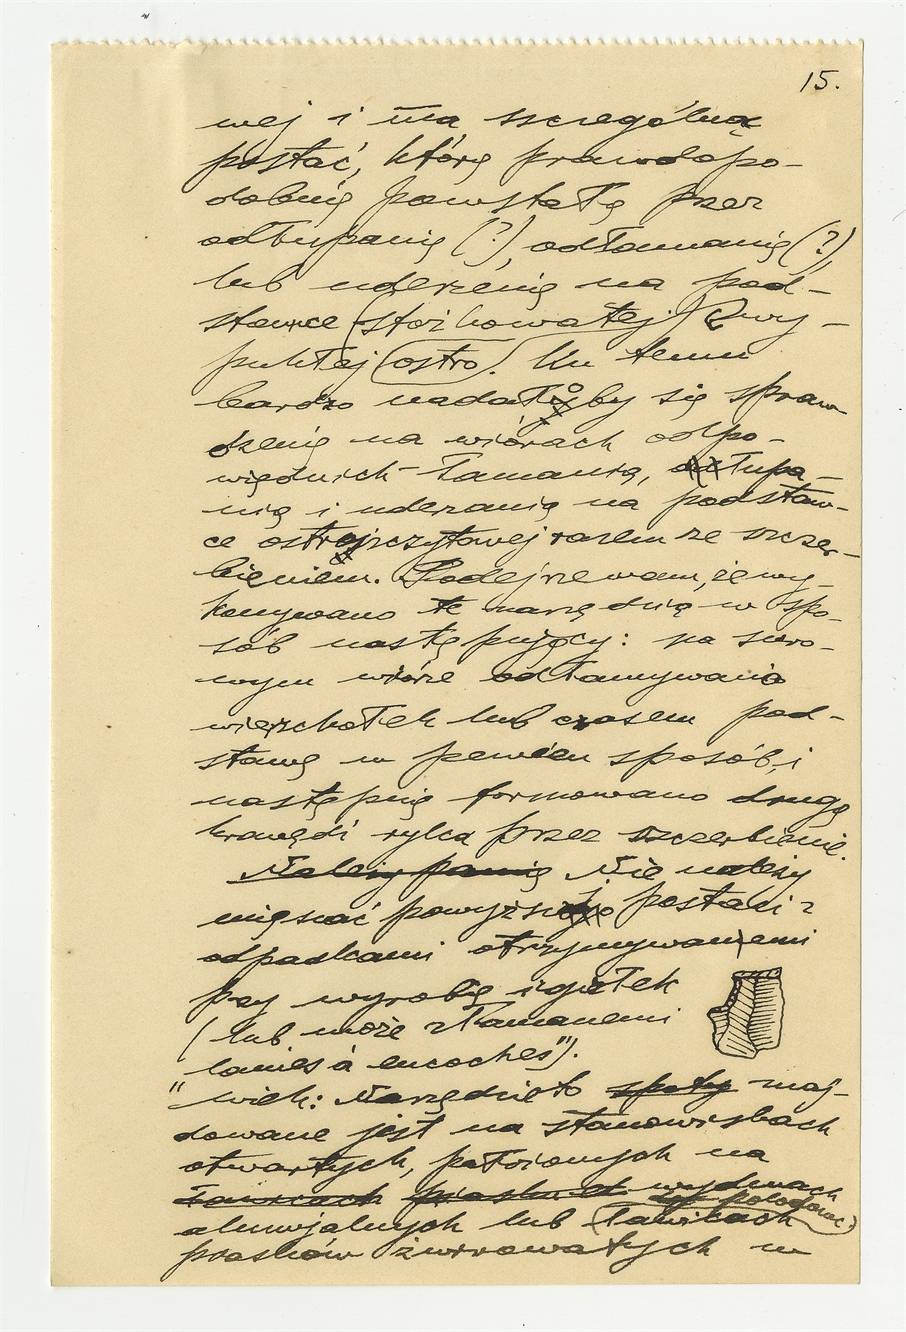 15.
wej i ma szczególną
postać, którą prawdopo-
dobnie powstałą przez
odłupanie (?), odłamanie (?)
lub uderzenie na pod-
stawce (stożkowatej) wy-
pukłej (ostro). Ku temu
bardzo nadałoby się spraw
dzenie na wiórach odpo-
wiednich łamanie, łupa-
nie i uderzanie na podstaw-
ce ostrej razem ze szczer-
bieniem. Podejrzewam, że wy-
konywano te narzędzia w spo-
sób następujący: na suro-
wym wiórze odłamywano
wierzchołek lub czasem pod-
stawę w pewien sposób, i
następnie formowano drugą
krawędź rylca przez szczerbienie.
Nie należy
mieszać powyższej postaci z
odpadkami otrzymywanemi
przy wyrobie igiełek
(lub może złamanemi
"lames à encoches").
Wiek: Narzędzie to znaj-
dowane jest na stanowiskach
otwartych, położonych na
wydmach
aluwjalnych lub ławicach
piasków żwirowatych w